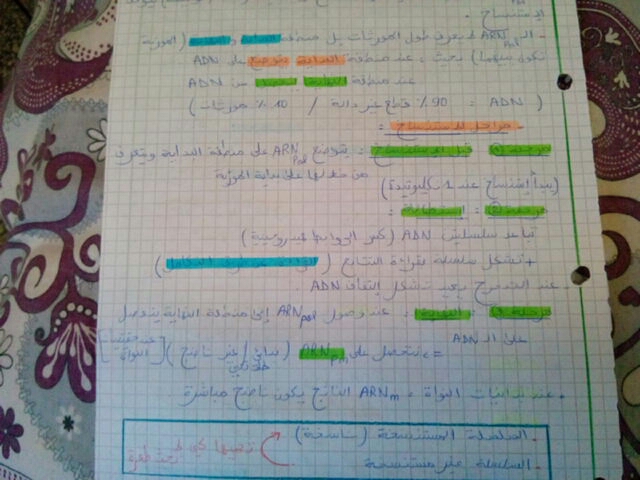 الاستنساخ.
- الـ ARN pol لا يعرف طول المورثات بل منطقة البداية والنهاية (المورثة
تكون بينهما) بحيث: عند منطقة البداية يتوضع على ADN
عند منطقة النهاية ينفصل عن ADN
( ADN : 90% قطع غير دالة / 10% مورثات )
- مراحل الاستنساخ :
مرحلة ① قبل الاستنساخ : يتوضع ARN pol على منطقة البداية ويتعرف
من خلالها على بداية المورثة
(يبدأ إستنساخ عند 1 نكليوتيدة)
مرحلة ② : إستطالة :
تباعد سلسلتي ADN (كسر الروابط الهيدروجينية)
+ تشكل سلسلة بقراءة النتائج ( التكامل )
. عند الخروج يعيد تشكل إلتفاف ADN.
مرحلة ③ : النهاية : عند وصول ARN pol إلى منطقة النهاية ينفصل
على الـ ADN
=> نتحصل على ARN pm (بدائي / غير ناضج) [عند حقيقيات النواة]
• عند بدائيات النواة : ARNm الناتج يكون ناضج مباشرة
- السلسلة المستنسخة (ناسخة)
- السلسلة غير مستنسخة